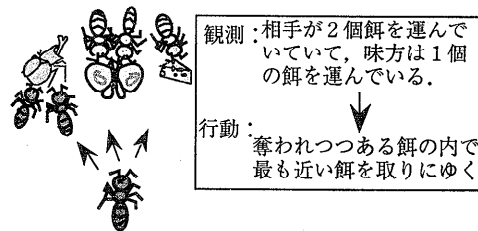 観測：相手が２個餌を運んで
いていて，味方は１個
の餌を運んでいる．
行動：
奪われつつある餌の内で
最も近い餌を取りにゆく